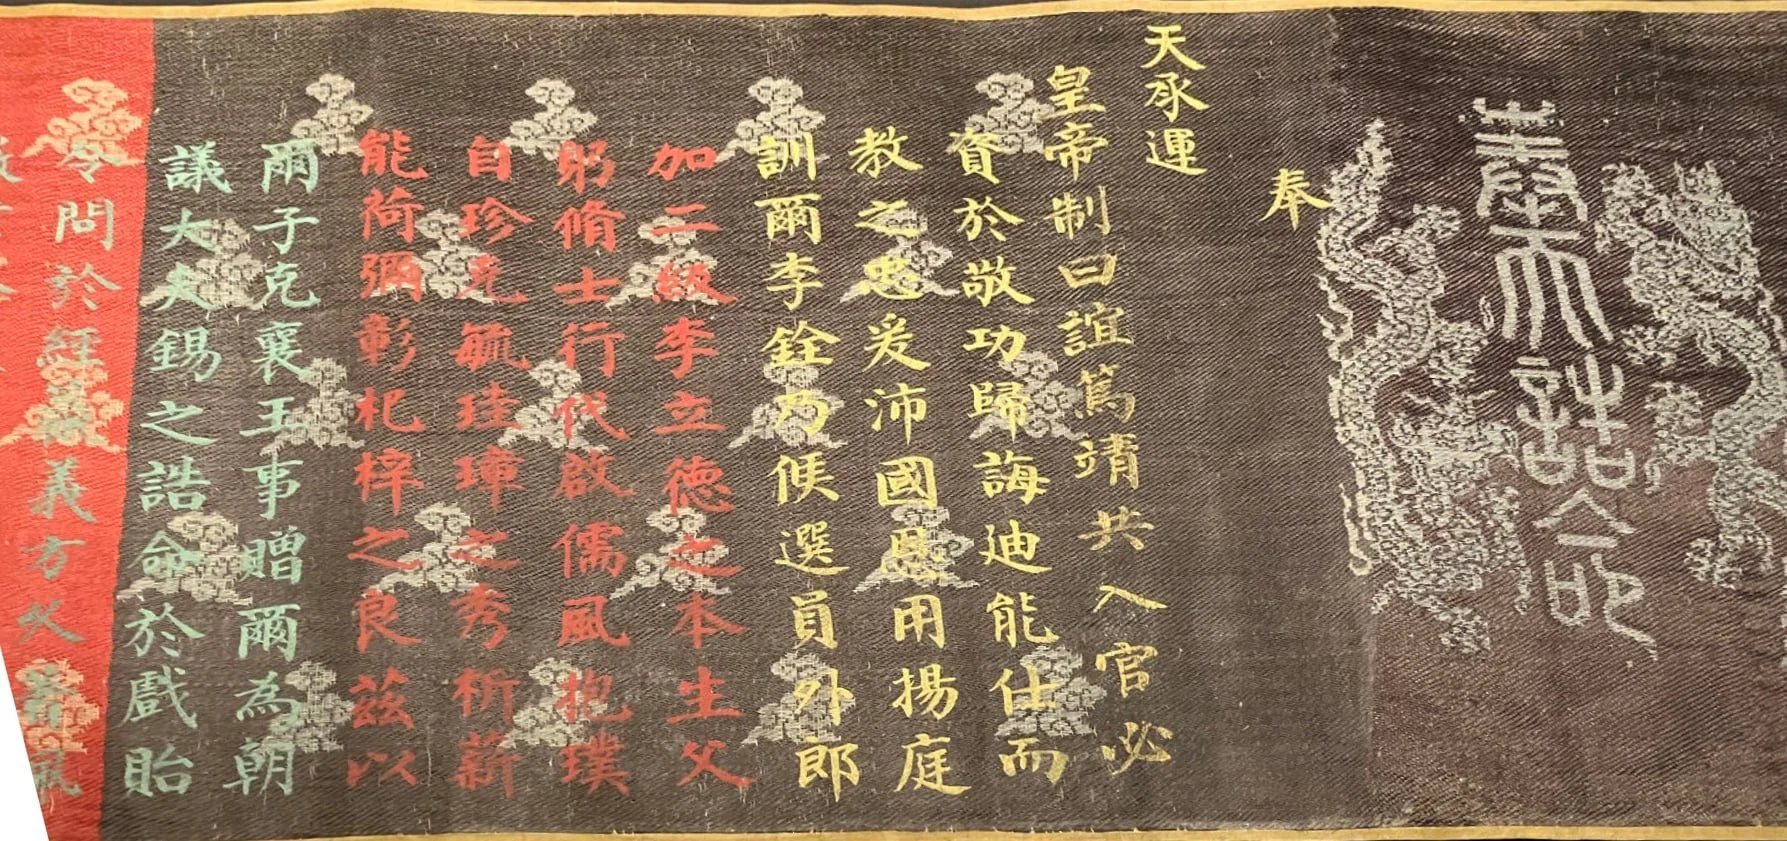 奉天誥命
奉
天承運
皇帝制曰誼篤靖共入官必
資於敬功歸誨迪能仕而
教之忠爰沛國恩用揚庭
訓爾李銓乃候選員外郎
加二級李立德之本生父
躬脩士行代啟儒風抱璞
自珍克毓珪璋之秀析薪
能荷彌彰杞梓之良茲以
爾子克襄王事贈爾為朝
議大夫錫之誥命於戲貽
令問於經籯義方久著風